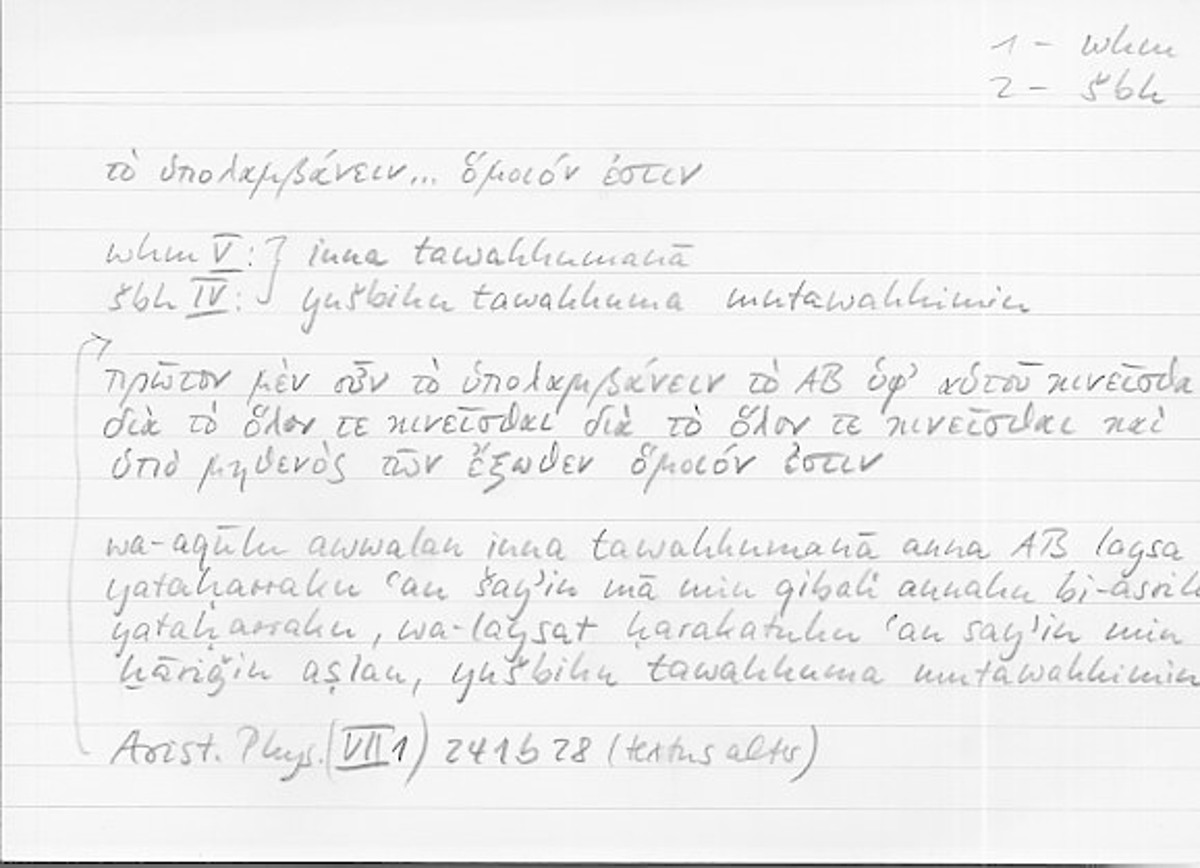 1 - whm
2 - šbh
τὸ ὑπολαμβάνειν... ὅμοιόν ἐστιν
whm V : } inna tawahhumanā
šbh IV : } yušbihu tawahhuma mutawahhimin
πρῶτον μὲν οὖν τὸ ὑπολαμβάνειν τὸ AB ὑφ' αὑτοῦ κινεῖσθα
διὰ τὸ ὅλον τε κινεῖσθαι διὰ τὸ ὅλον τε κινεῖσθαι καὶ
ὑπὸ μηθενὸς τῶν ἔξωθεν ὅμοιόν ἐστιν
wa-aqūlu awwalan inna tawahhumanā anna AB laysa
yataḥarraku ʿan šayʾin mā min qibali annahu bi-asrih
yataḥarraku, wa-laysat ḥarakatuhu ʿan šayʾin min
ḫāriǧin aṣlan, yušbihu tawahhuma mutawahhimin
Arist. Phys. (VII 1) 241b28 (textus alter)